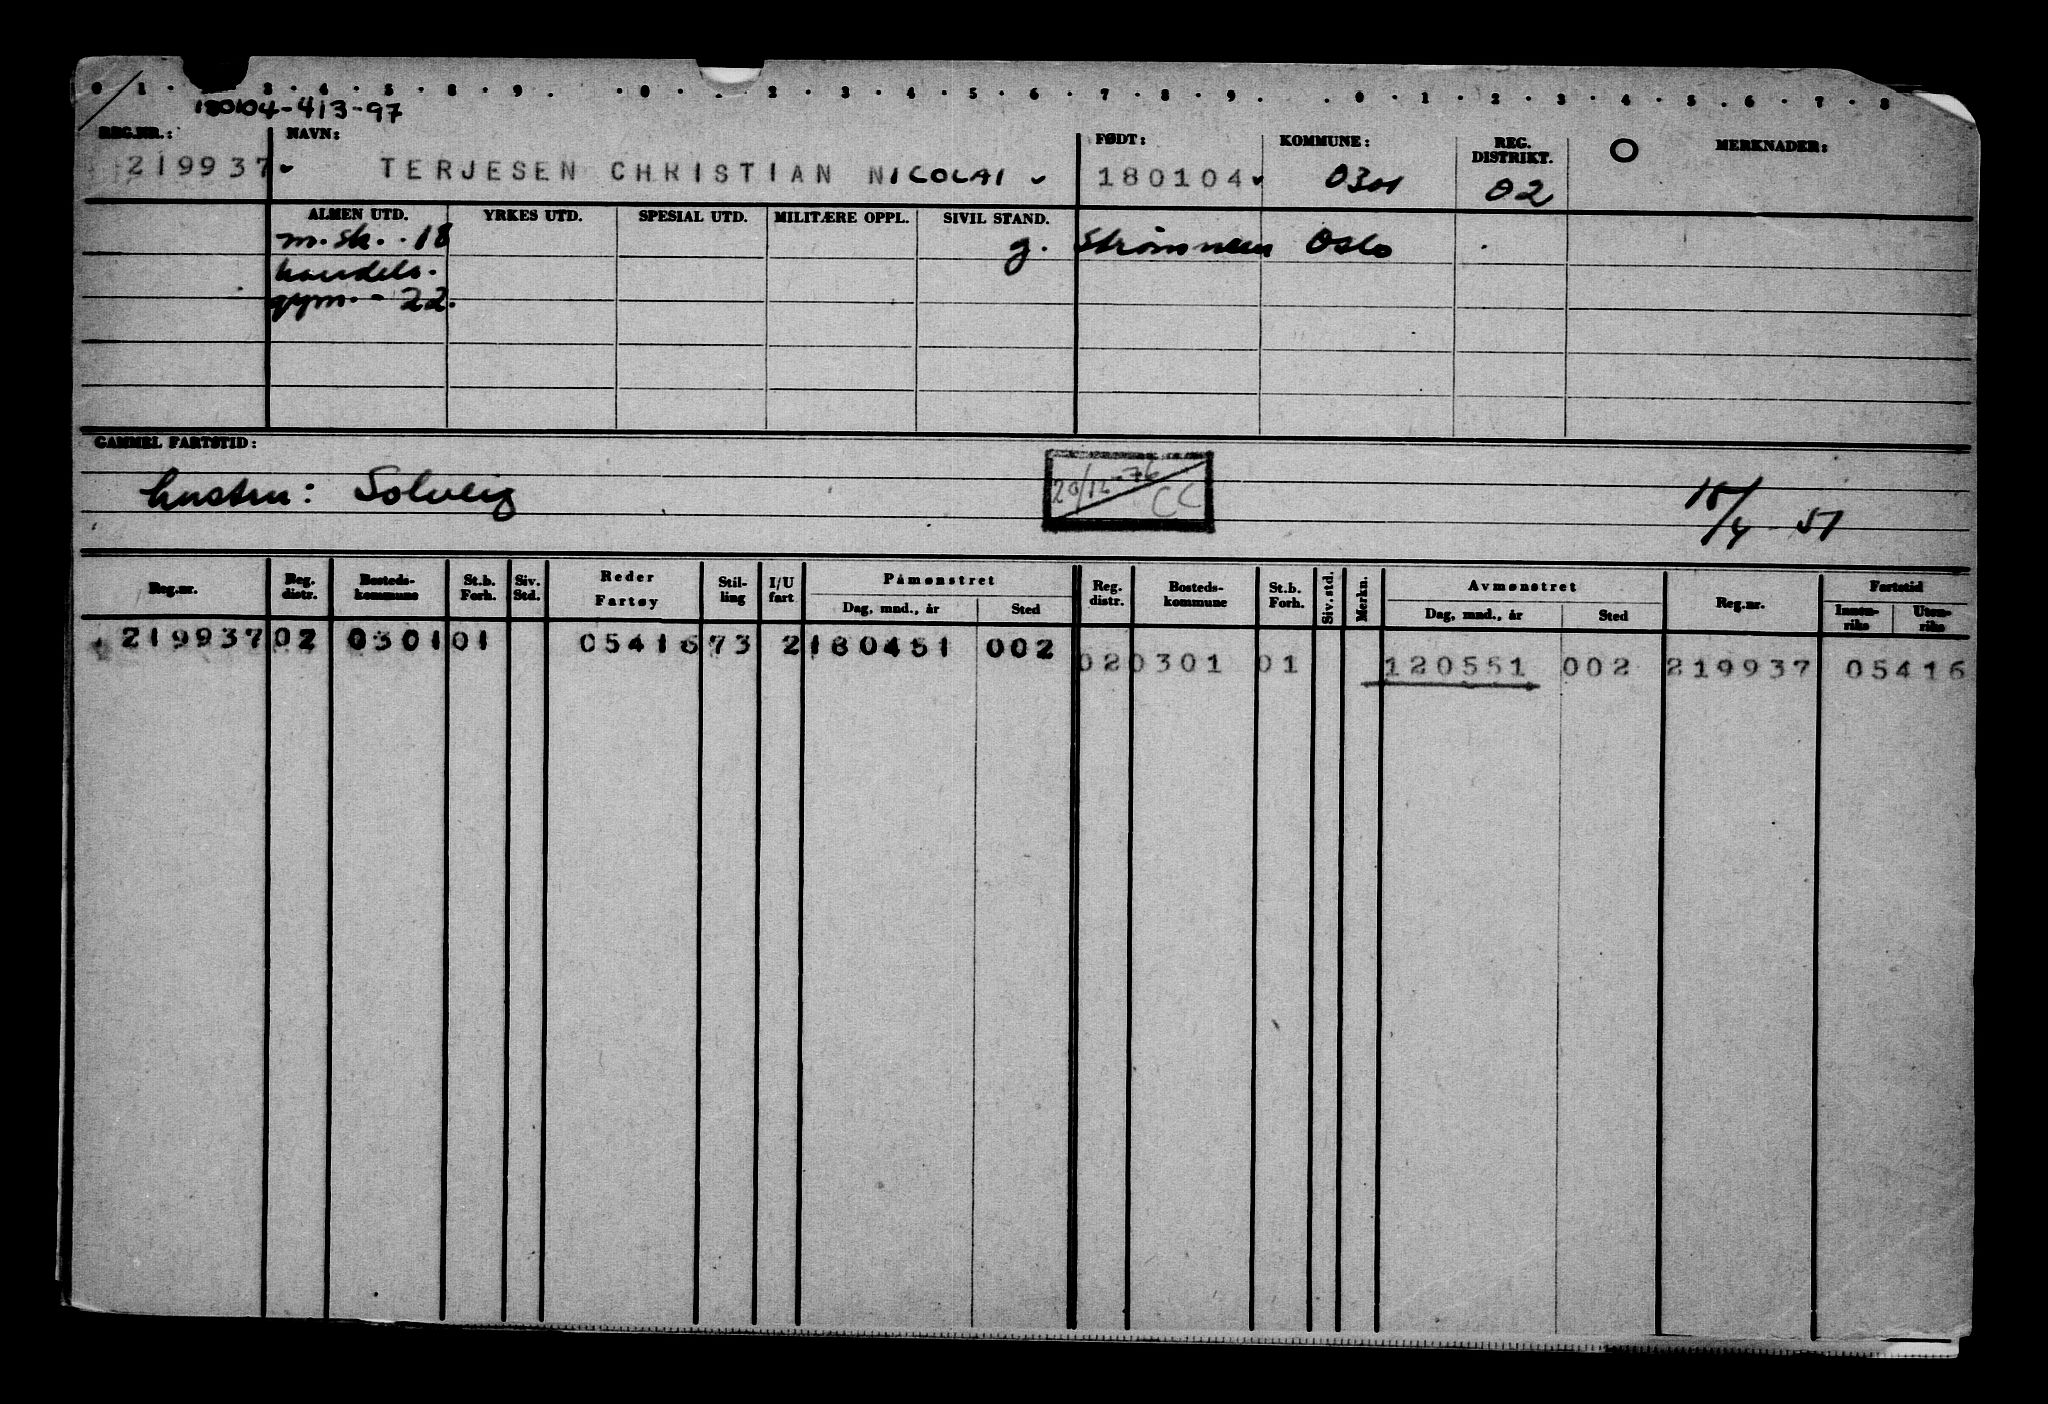 0 1 3 4 5 8 9 0 2 3 4 5 6 7 8 9 0 1 2 3 4 5 6 7 8
180104-413-97
REG.NR.: NAVN: FØDT: KOMMUNE: REG. DISTRIKT. MERKNADER:
219937 TERJESEN CHRISTIAN NICOLAI 180104 0301 02
ALMEN UTD. YRKES UTD. SPESIAL UTD. MILITÆRE OPPL. SIVIL STAND.
m.sk. - 18 g. Strømmen Oslo
handels.
gym. - 22.
GAMMEL FARTSTID:
hustru: Solveig 20/12-76 CC 18/4-51
Reg.nr. Reg. distr. Bosteds-kommune St.b. Forh. Siv. Std. Reder Fartøy Stil-ling I/U fart Påmønstret Dag, mnd., år Sted Reg. distr. Bosteds-kommune St.b. Forh. Siv. std. Merkn. Avmønstret Dag, mnd., år Sted Reg.nr. Fartstid Innen-riks Uten-riks
219937 02 0301 01 05416 73 2 180451 002
02 0301 01 120551 002 219937 05416